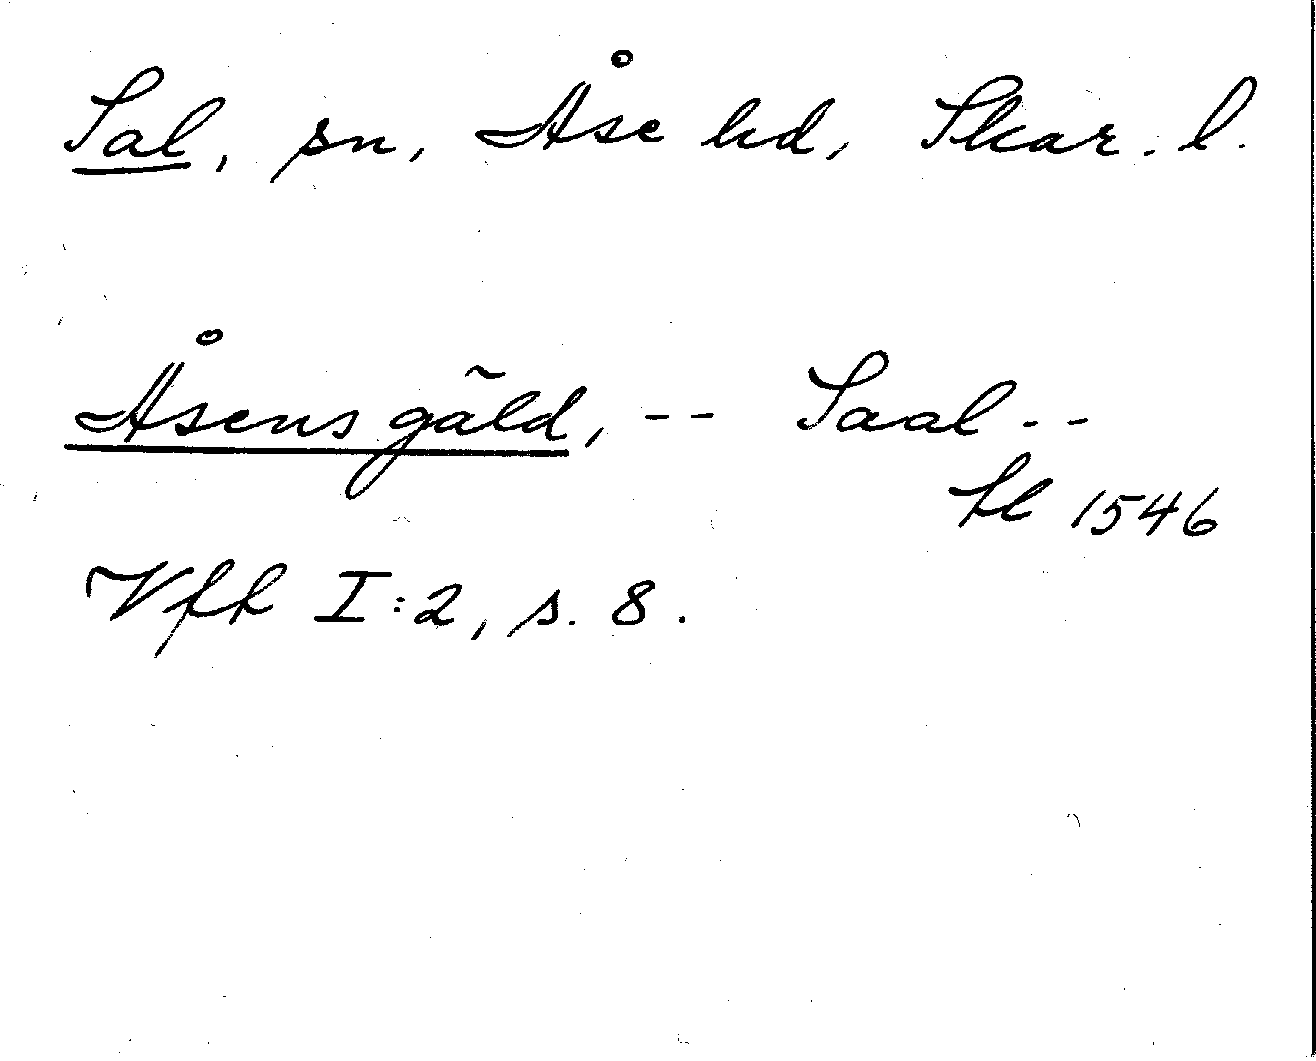 Sal, sn, Åse hd, Skar. l.
Åsens gäld, -- Saal --
1546
Vfk I:2, s. 8.